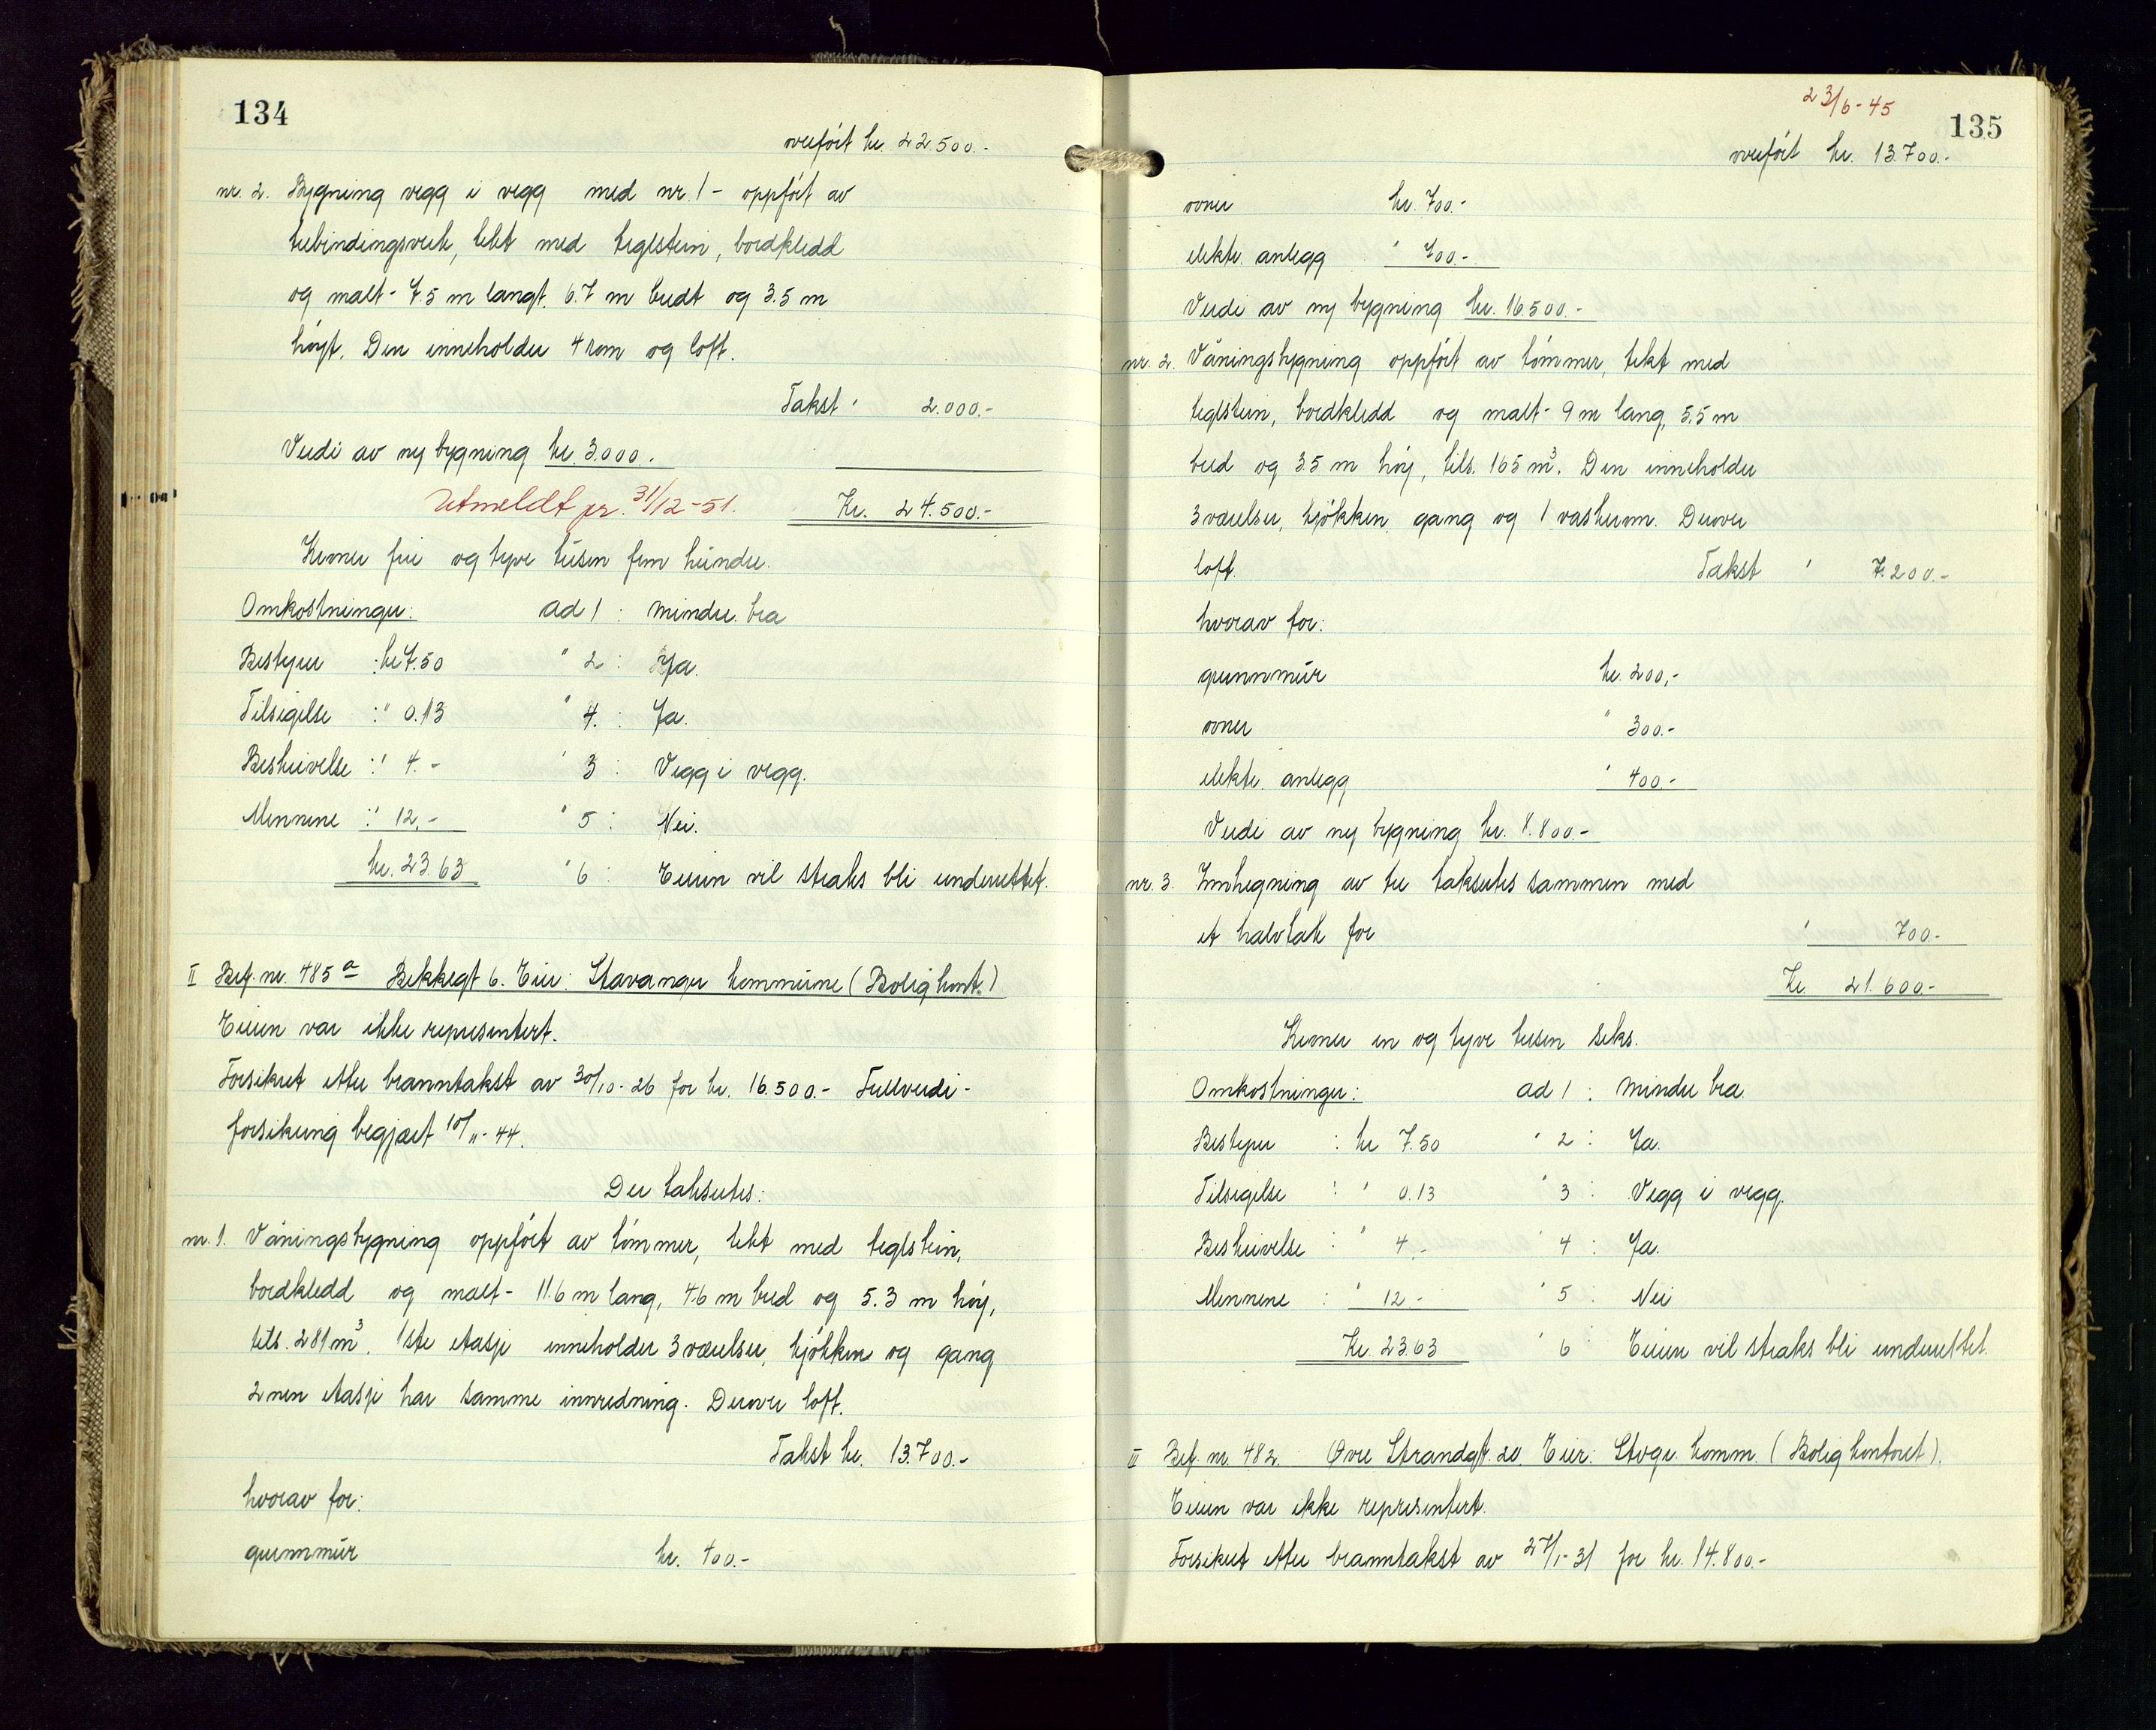 134
overført kr. 22.500.-
nr. 2. Bygning vegg i vegg med nr. 1 - oppført av
trebindingsverk, tekt med teglstein, bordkledd
og malt - 7.5 m langt. 6.7 m bredt og 3.5 m
høyt. Den inneholder 4 rom og loft.
Takst " 2.000.-
Verdi av ny bygning kr. 3.000.-
Utmeldt pr. 31/12-51. Kr. 24.500.-
Kroner fire og tyve tusen fem hundre.
Omkostninger: ad 1 : mindre bra
Bestyrer : kr 7.50 " 2 : Ja.
Tilsigelse : " 0.13 " 4. : Ja.
Beskrivelse : " 4.- " 3 : Vegg i vegg.
Mennene : " 12.- " 5 : Nei.
kr. 23.63 " 6 : Eieren vil straks bli underrettet.
II Bef. nr. 485 a Bekkegt 6. Eier: Stavanger kommune (Boligkont.)
Eieren var ikke representert.
Forsikret etter branntakst av 30/10-26 for kr. 16.500.- Fullverdi-
forsikring begjært 10/11-44.
Der takseres:
nr. 1. Våningsbygning oppført av tømmer, tekt med teglstein,
bordkledd og malt - 11.6 m lang, 4.6 m bred og 5.3 m høy,
tils. 281 m³. 1ste etasje inneholder 3 værelser, kjøkken og gang
2nen etasje har samme innredning. Derover loft.
Takst kr. 13.700.-
hvorav for:
grunnmur kr. 400.-
23/6-45
135
overført kr. 13.700.-
ovner kr. 700.-
elektr. anlegg " 700.-
Verdi av ny bygning kr. 16.500.-
nr. 2. Våningsbygning oppført av tømmer, tekt med
teglstein, bordkledd og malt - 9 m lang, 5.5 m
bred og 3.5 m høy, tils. 165 m³. Den inneholder
3 værelser, kjøkken gang og 1 vaskerom. Derover
loft. Takst " 7.200.-
hvorav for:
grunnmur kr. 200,-
ovner " 300.-
elektr. anlegg " 400.-
Verdi av ny bygning kr. 8.800.-
nr. 3. Innhegning av tre takseres sammen med
et halvtak for " 700.-
Kr 21.600.-
Kroner en og tyve tusen seks.
Omkostninger: ad 1 : mindre bra
Bestyrer : kr 7.50 " 2 : Ja.
Tilsigelse : " 0.13 " 3 : Vegg i vegg.
Beskrivelse : " 4.- " 4 : Ja.
Mennene : " 12.- " 5 : Nei
Kr. 23.63 " 6 : Eieren vil straks bli underrettet.
II Bef. nr. 482. Øvre Strandgt. 20. Eier: Stvgr. komm. (Boligkontoret).
Eieren var ikke representert.
Forsikret etter branntakst av 27/1-31 for kr. 14.800.-